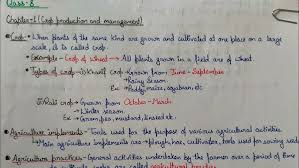 Class-8
Chapter-1 (Crop production and management)
Crop - When plants of the same kind are grown and cultivated at one place on a large
scale, it is called crop.
Example - Crop of wheat → All plants grown in a field are of wheat.
Types of crop - i) Kharif crop → Grown from June - September
→ Rainy season
Ex → Paddy, maize, soyabean, etc.
ii) Rabi crop → Grown from October - March
→ Winter season
Ex → Gram, pea, mustard, linseed etc.
Agriculture implements - Tools used for the purpose of various agricultural activities.
Main agriculture implements are → plough, hoe, cultivator, tools used for sowing
Agriculture practices - General activities undertaken by farmers over a period of
are called agricultural practices